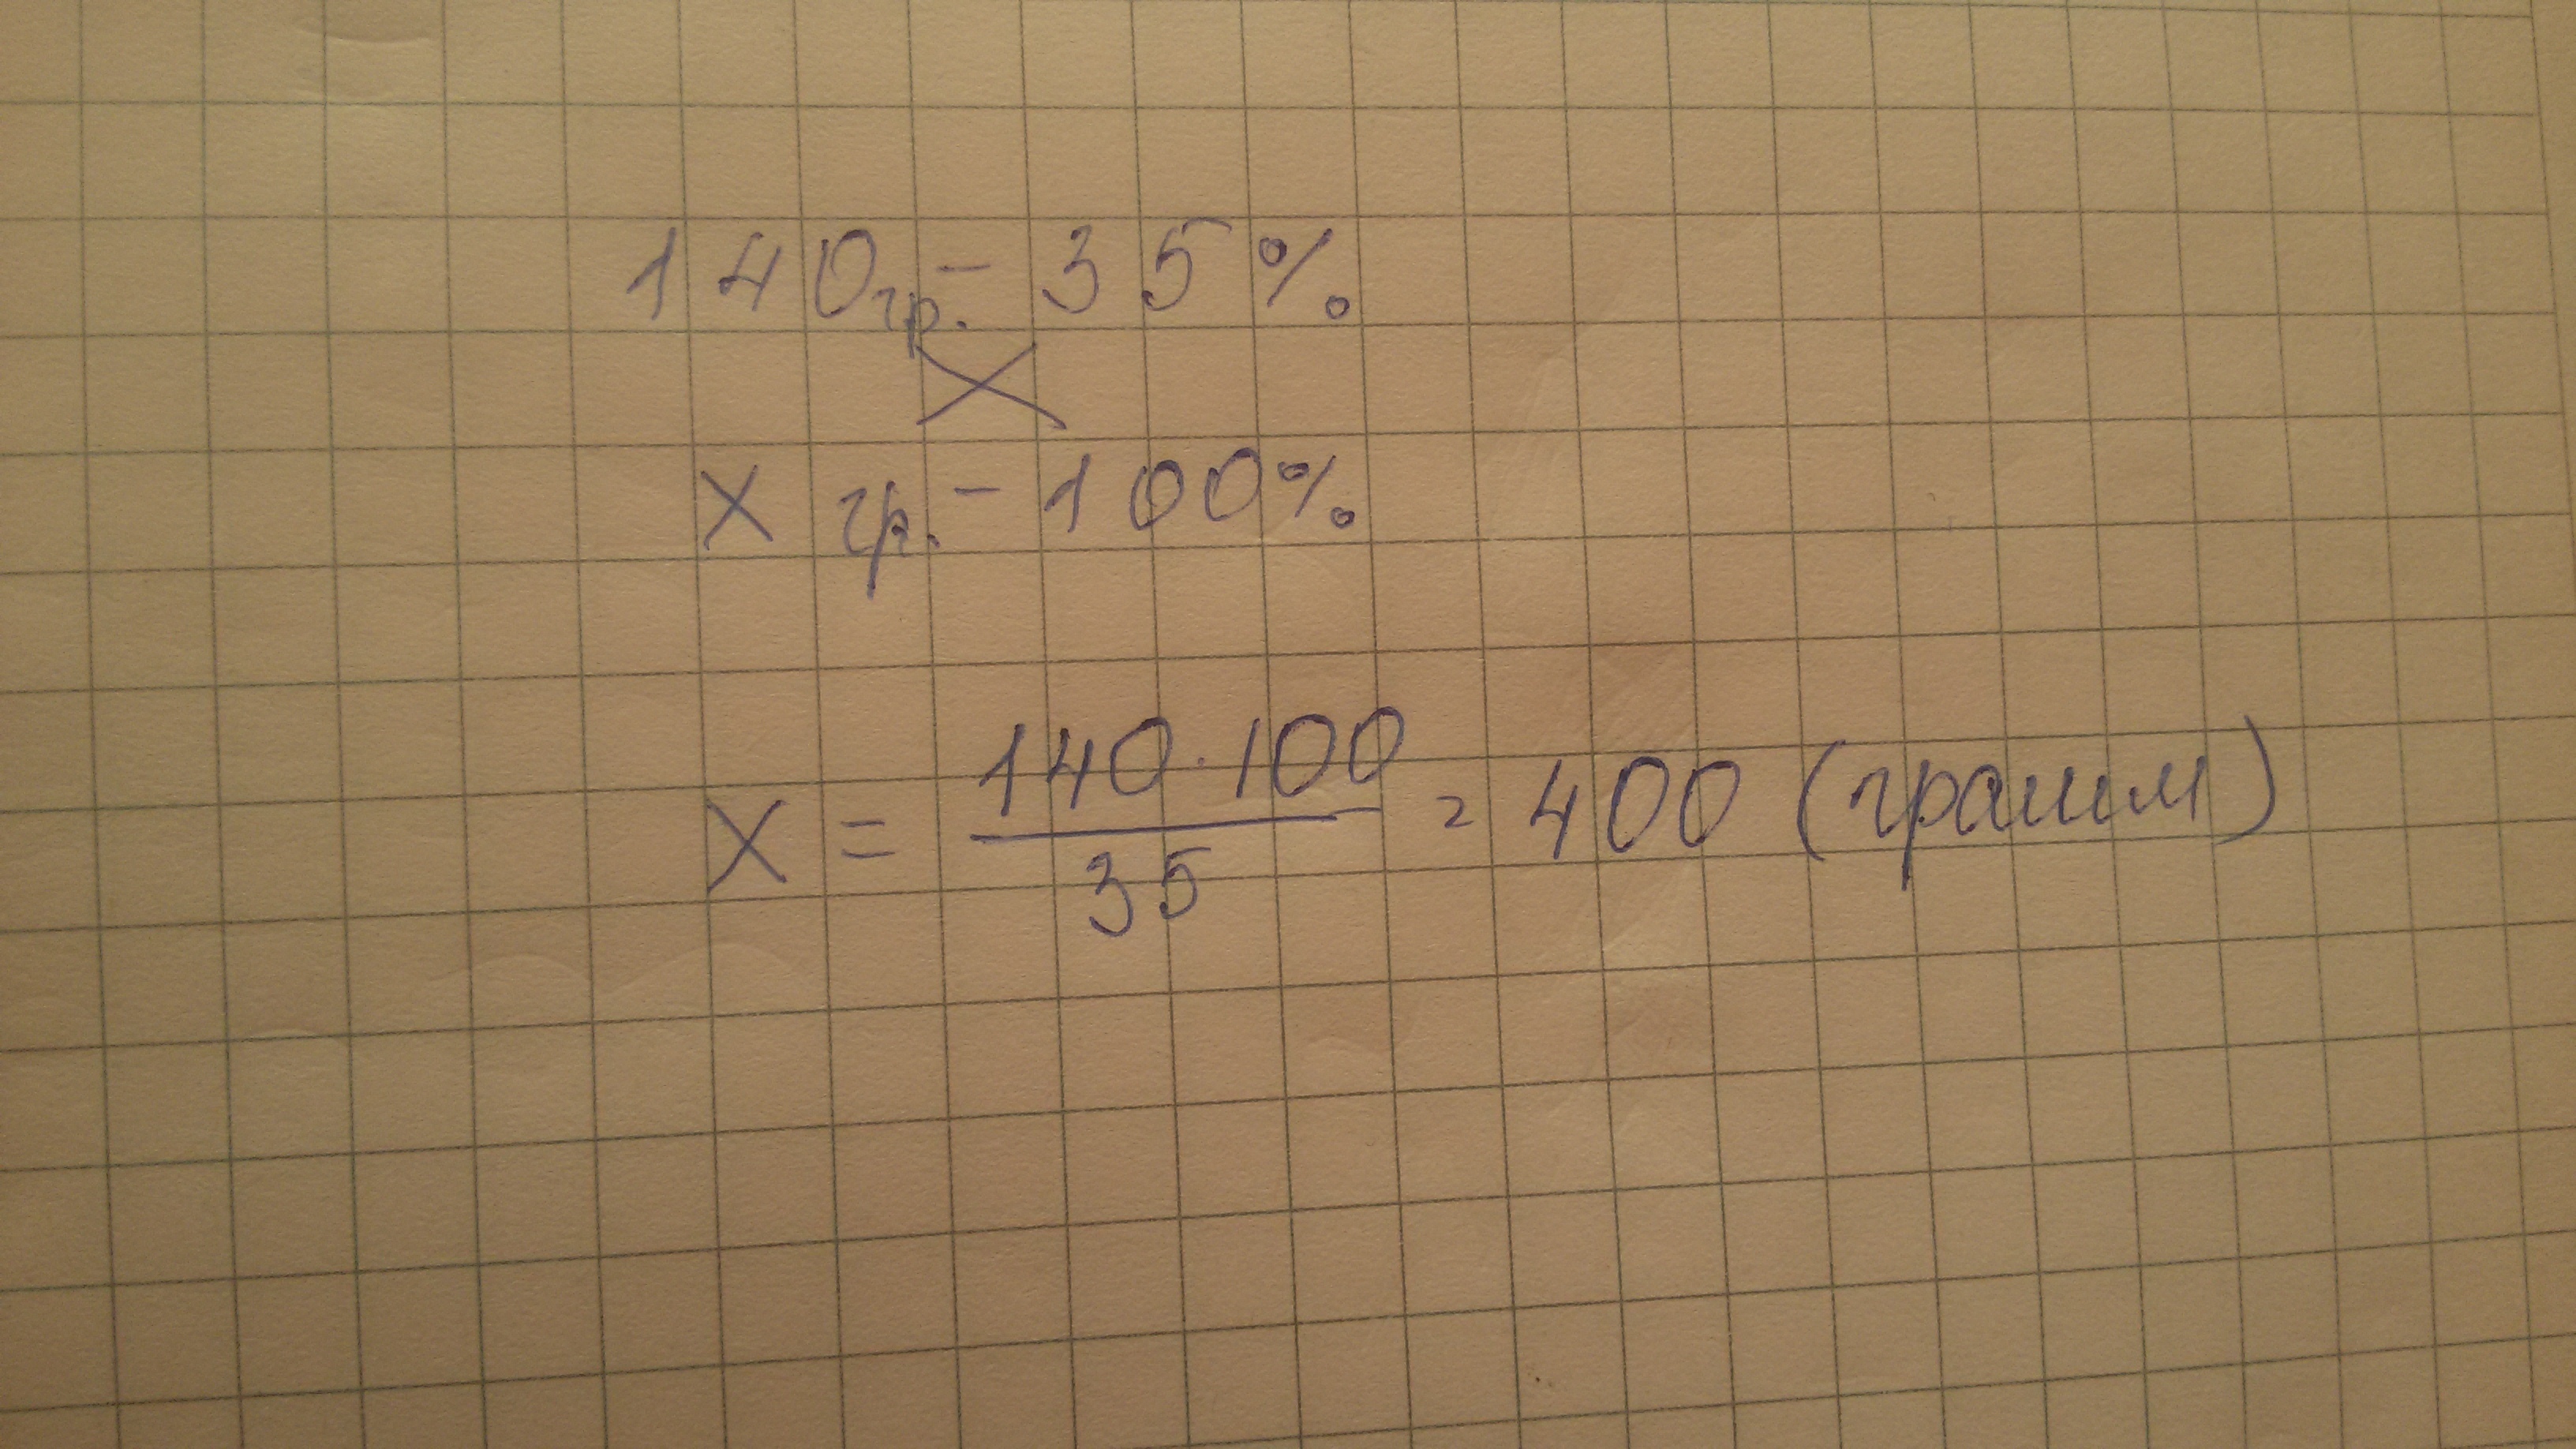 140гр. - 35%
X гр. - 100%
X = 140·100 / 35 = 400 (грамм)